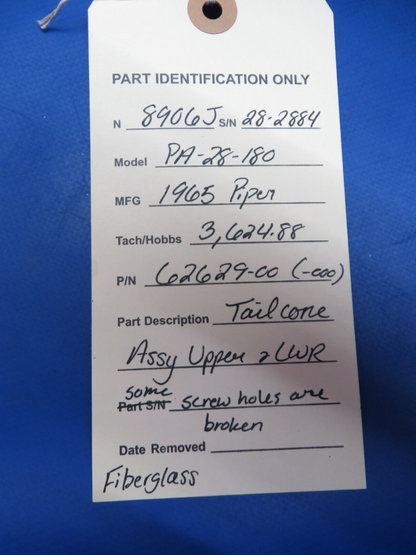 PART IDENTIFICATION ONLY
N 8906J S/N 28-2884
Model PA-28-180
MFG 1965 Piper
Tach/Hobbs 3,624.88
P/N 62629-00 (-000)
Part Description Tail cone
Assy Upper & LWR
some
Part S/N screw holes are
broken
Date Removed
Fiberglass